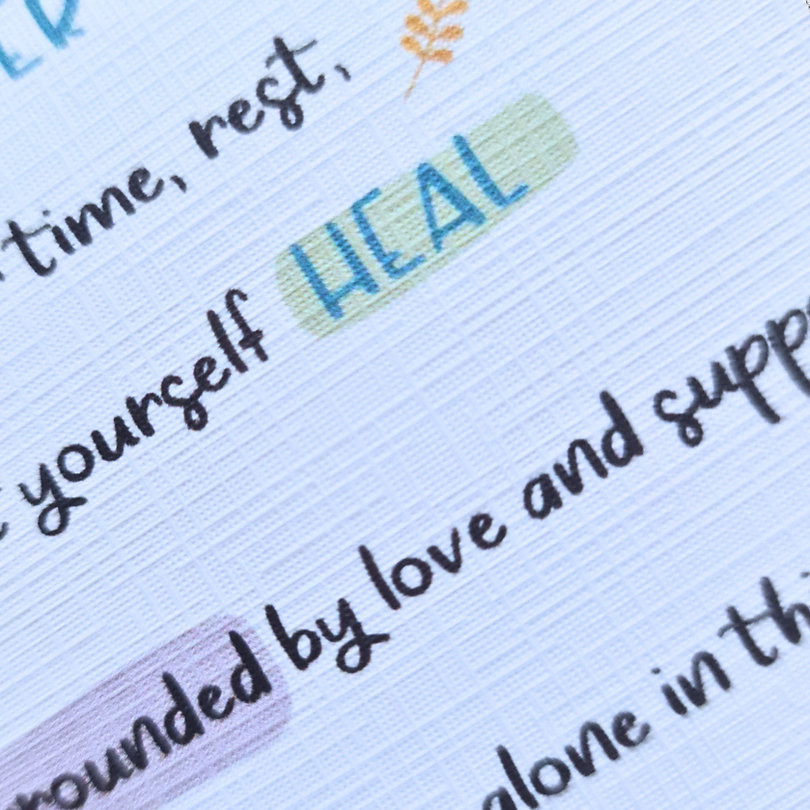 ER
time, rest,
yourself HEAL
rounded by love and supp
alone in th